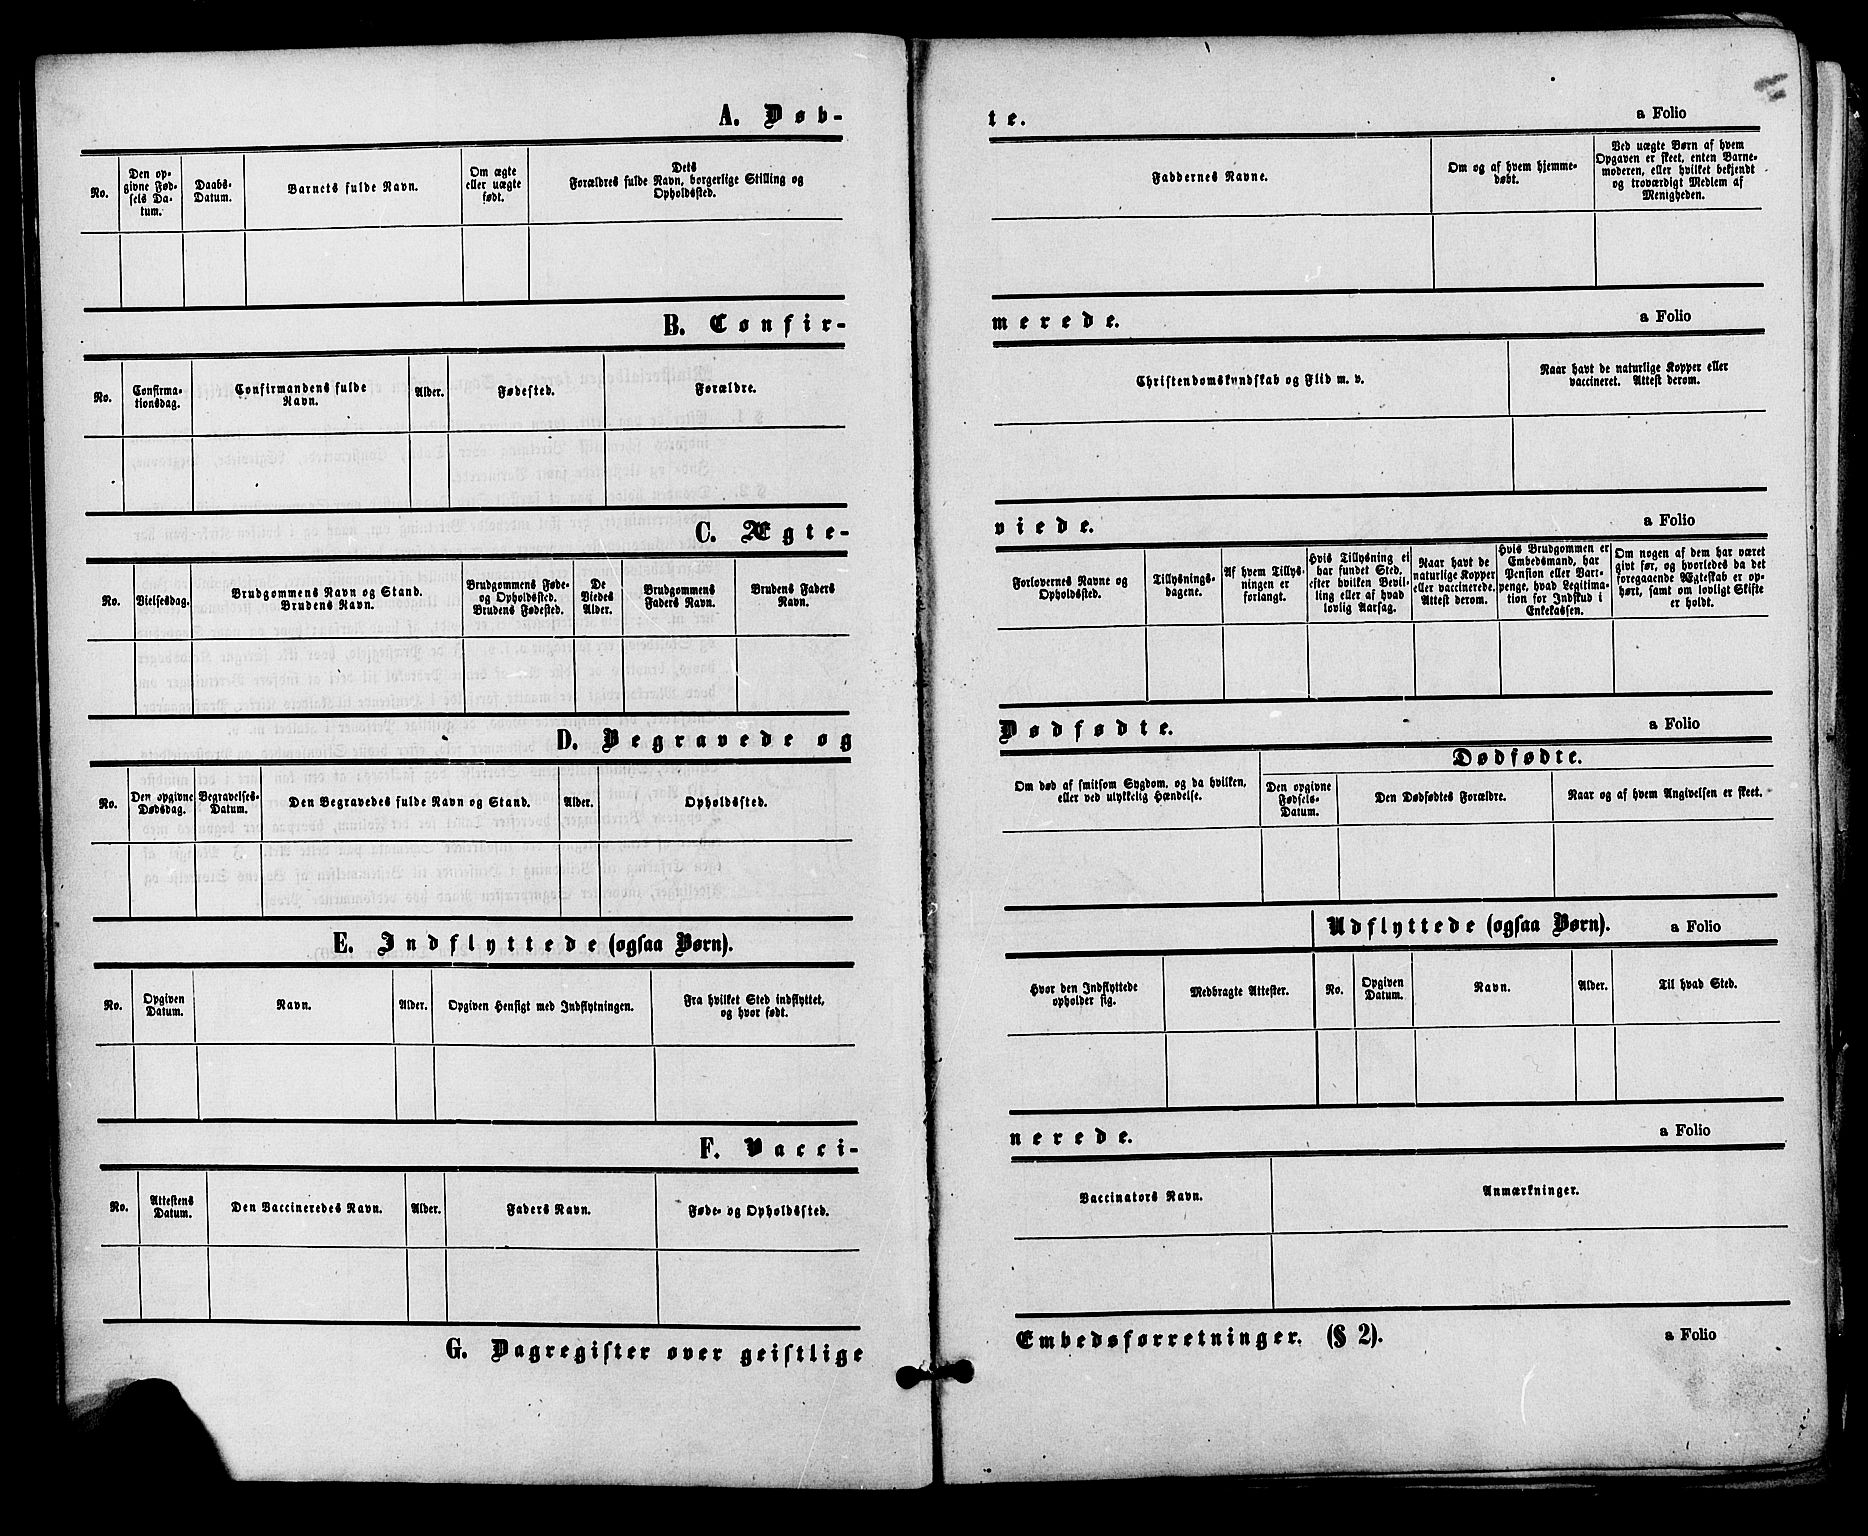 A. Døb-
te.
a Folio
No.
Den op-
givne Fød-
sels Da-
tum.
Daabs-
Datum.
Barnets fulde Navn.
Om ægte
eller uægte
født.
Dets
Forældres fulde Navn, borgerlige Stilling og
Opholdssted.
Faddernes Navne.
Om og af hvem hjemme-
døbt.
Ved uægte Børn af hvem
Opgaven er skeet, enten Barne-
moderen, eller hvilket bekjendt
og troværdigt Medlem af
Menigheden.
B. Confir-
merede.
a Folio
No.
Confirma-
tionsdag.
Confirmandens fulde
Navn.
Alder.
Fødested.
Forældre.
Christendomskundskab og Flid m. v.
Naar havt de naturlige Kopper eller
vaccineret. Attest derom.
C. Ægte-
viede.
a Folio
No.
Vielsesdag.
Brudgommens Navn og Stand.
Brudens Navn.
Brudgommens Føde-
og Opholdssted.
Brudens Fødested.
De
Viedes
Alder.
Brudgommens
Faders Navn.
Brudens Faders
Navn.
Forlovernes Navne og
Opholdssted.
Tillysnings-
dagene.
Af hvem Tillys-
ningen er
forlangt.
Hvis Tillysning ei
har fundet Sted,
efter hvilken Bevil-
ling eller af hvad
lovlig Aarsag.
Naar havt de
naturlige Kopper
eller vaccinerede.
Attest derom.
Hvis Brudgommen er
Embedsmand, har
Pension eller Vart-
penge, hvad Legitima-
tion for Indskud i
Enkekassen.
Om nogen af dem har været
givt før, og hvorledes da det
foregaaende Ægteskab er op-
hørt, samt om lovligt Skifte
er holdt.
D. Begravede og
Dødfødte.
a Folio
No.
Den opgivne
Dødsdag.
Begravelses-
Datum.
Den Begravedes fulde Navn og Stand.
Alder.
Opholdssted.
Om død af smitsom Sygdom, og da hvilken,
eller ved ulykkelig Hændelse.
Dødfødte.
Den opgivne
Fødsels-
Datum.
Den Dødfødtes Forældre.
Naar og af hvem Angivelsen er skeet.
E. Indflyttede (ogsaa Børn).
Udflyttede (ogsaa Børn).
a Folio
No.
Opgiven
Datum.
Navn.
Alder.
Opgiven Hensigt med Indflytningen.
Fra hvilket Sted indflyttet,
og hvor født.
Hvor den Indflyttede
opholder sig.
Medbragte Attester.
No.
Opgiven
Datum.
Navn.
Alder.
Til hvad Sted.
F. Vacci-
nerede.
a Folio
No.
Attestens
Datum.
Den Vaccineredes Navn.
Alder.
Faders Navn.
Føde- og Opholdssted.
Vaccinators Navn.
Anmærkninger.
G. Dagregister over geistlige
Embedsforretninger. (§ 2).
a Folio